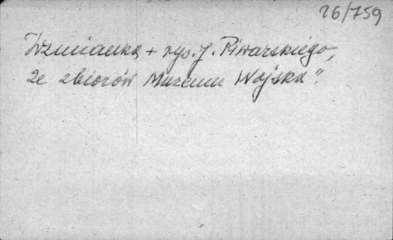 26/759
Wzmianka + rys. J. Piwarskiego,
ze zbiorów Muzeum Wojska".